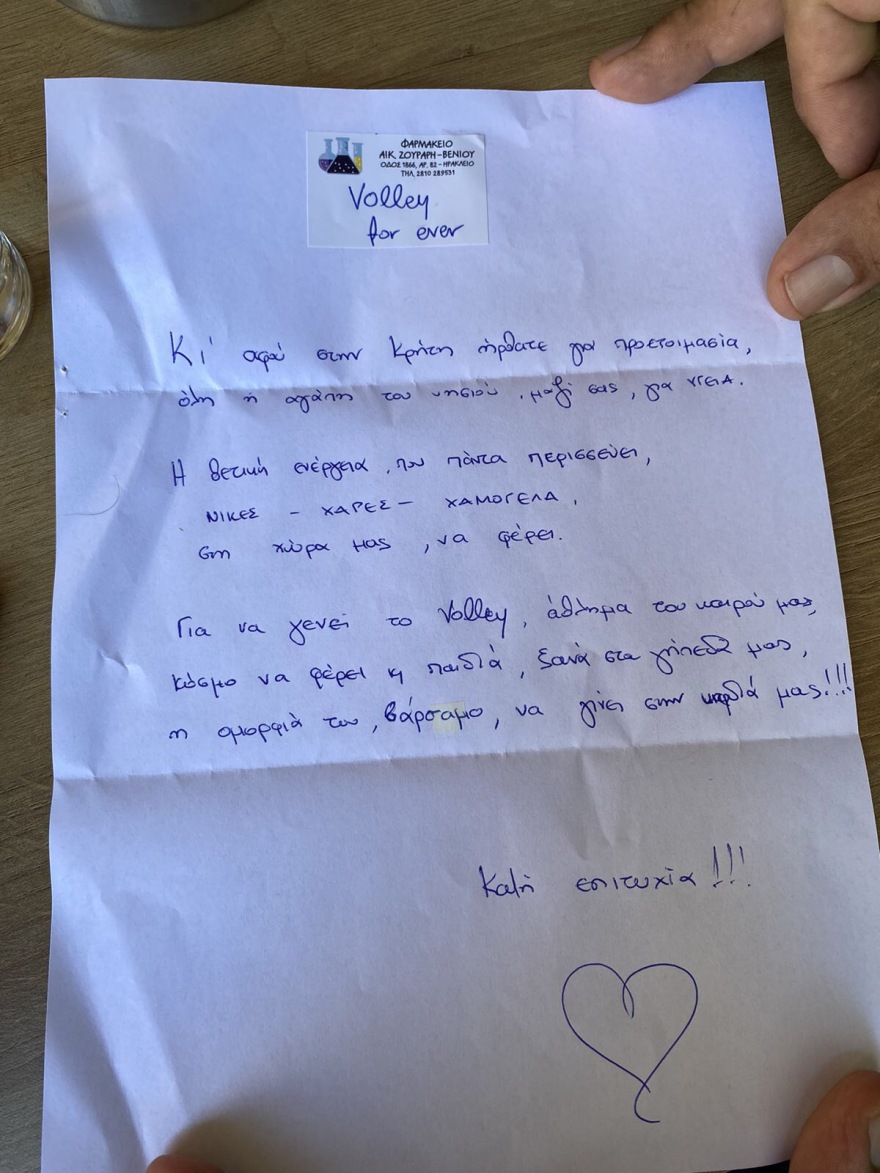 ΦΑΡΜΑΚΕΙΟ
ΑΙΚ. ΖΟΥΡΑΡΗ-ΒΕΝΙΟΥ
ΟΔΟΣ 1866, ΑΡ. 82 - ΗΡΑΚΛΕΙΟ
ΤΗΛ. 2810 289531
Volley
for ever
Κι' αφού στην Κρήτη ήρθατε για προετοιμασία,
όλη η αγάπη του νησιού, μαζί σας, για ΥΓΕΙΑ.
Η θετική ενέργεια, που πάντα περισσεύει,
ΝΙΚΕΣ - ΧΑΡΕΣ - ΧΑΜΟΓΕΛΑ,
στη χώρα μας, να φέρει.
Για να γενεί το Volley, άθλημα του καιρού μας,
κόσμο να φέρει κ παιδιά, ξανά στα γήπεδά μας,
η ομορφιά του, βάρσαμο, να γίνει στην καρδιά μας!!!
Καλή επιτυχία!!!